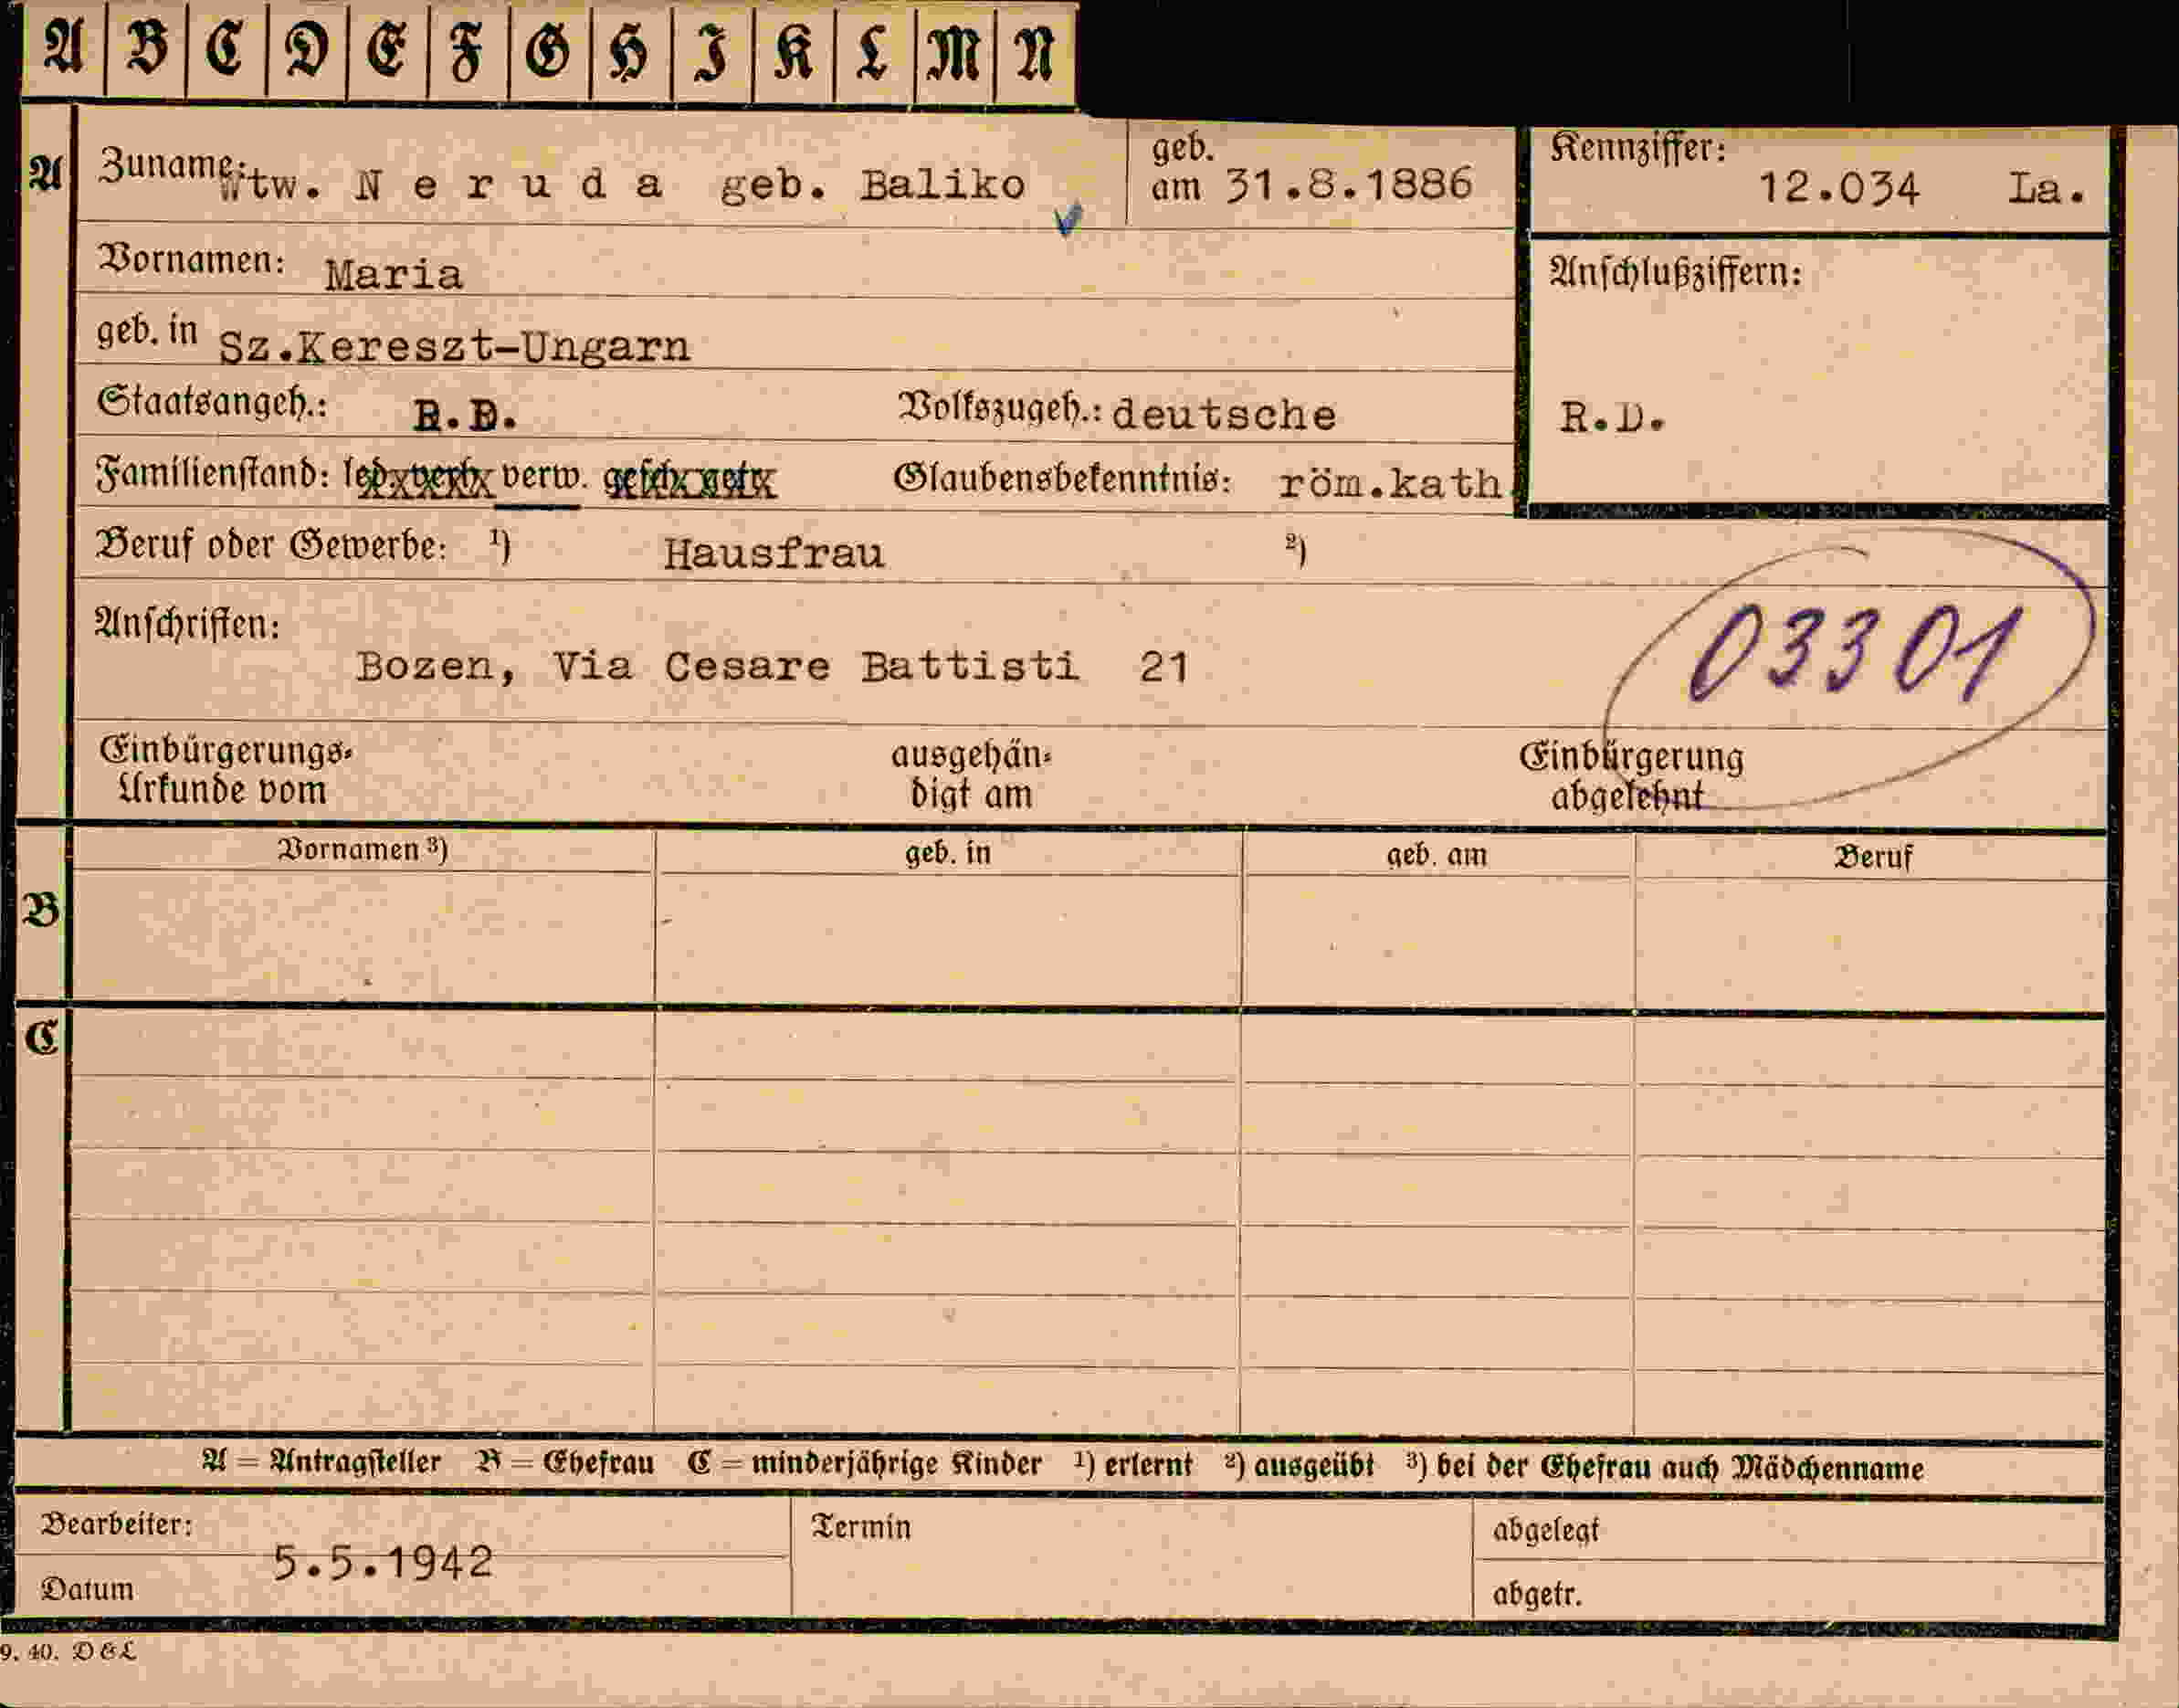 A B C D E F G H I K L M N
A Zuname: Wtw. N e r u d a geb. Baliko geb. am 31.8.1886 Kennziffer: 12.034 La.
Vornamen: Maria Anschlußziffern:
geb. in Sz.Kereszt-Ungarn
Staatsangeh.: R.D. Volkszugeh.: deutsche R.D.
Familienstand: led. verh. verw. gesch. getr. Glaubensbekenntnis: röm.kath.
Beruf oder Gewerbe: ¹) Hausfrau ²)
Anschriften:
Bozen, Via Cesare Battisti 21 03301
Einbürgerungs- ausgehän- Einbürgerung
Urkunde vom digt am abgelehnt
Vornamen ³) geb. in geb. am Beruf
B
C
A = Antragsteller B = Ehefrau C = minderjährige Kinder ¹) erlernt ²) ausgeübt ³) bei der Ehefrau auch Mädchenname
Bearbeiter: Termin abgelegt
5.5.1942
Datum abgetr.
9. 40. D&L